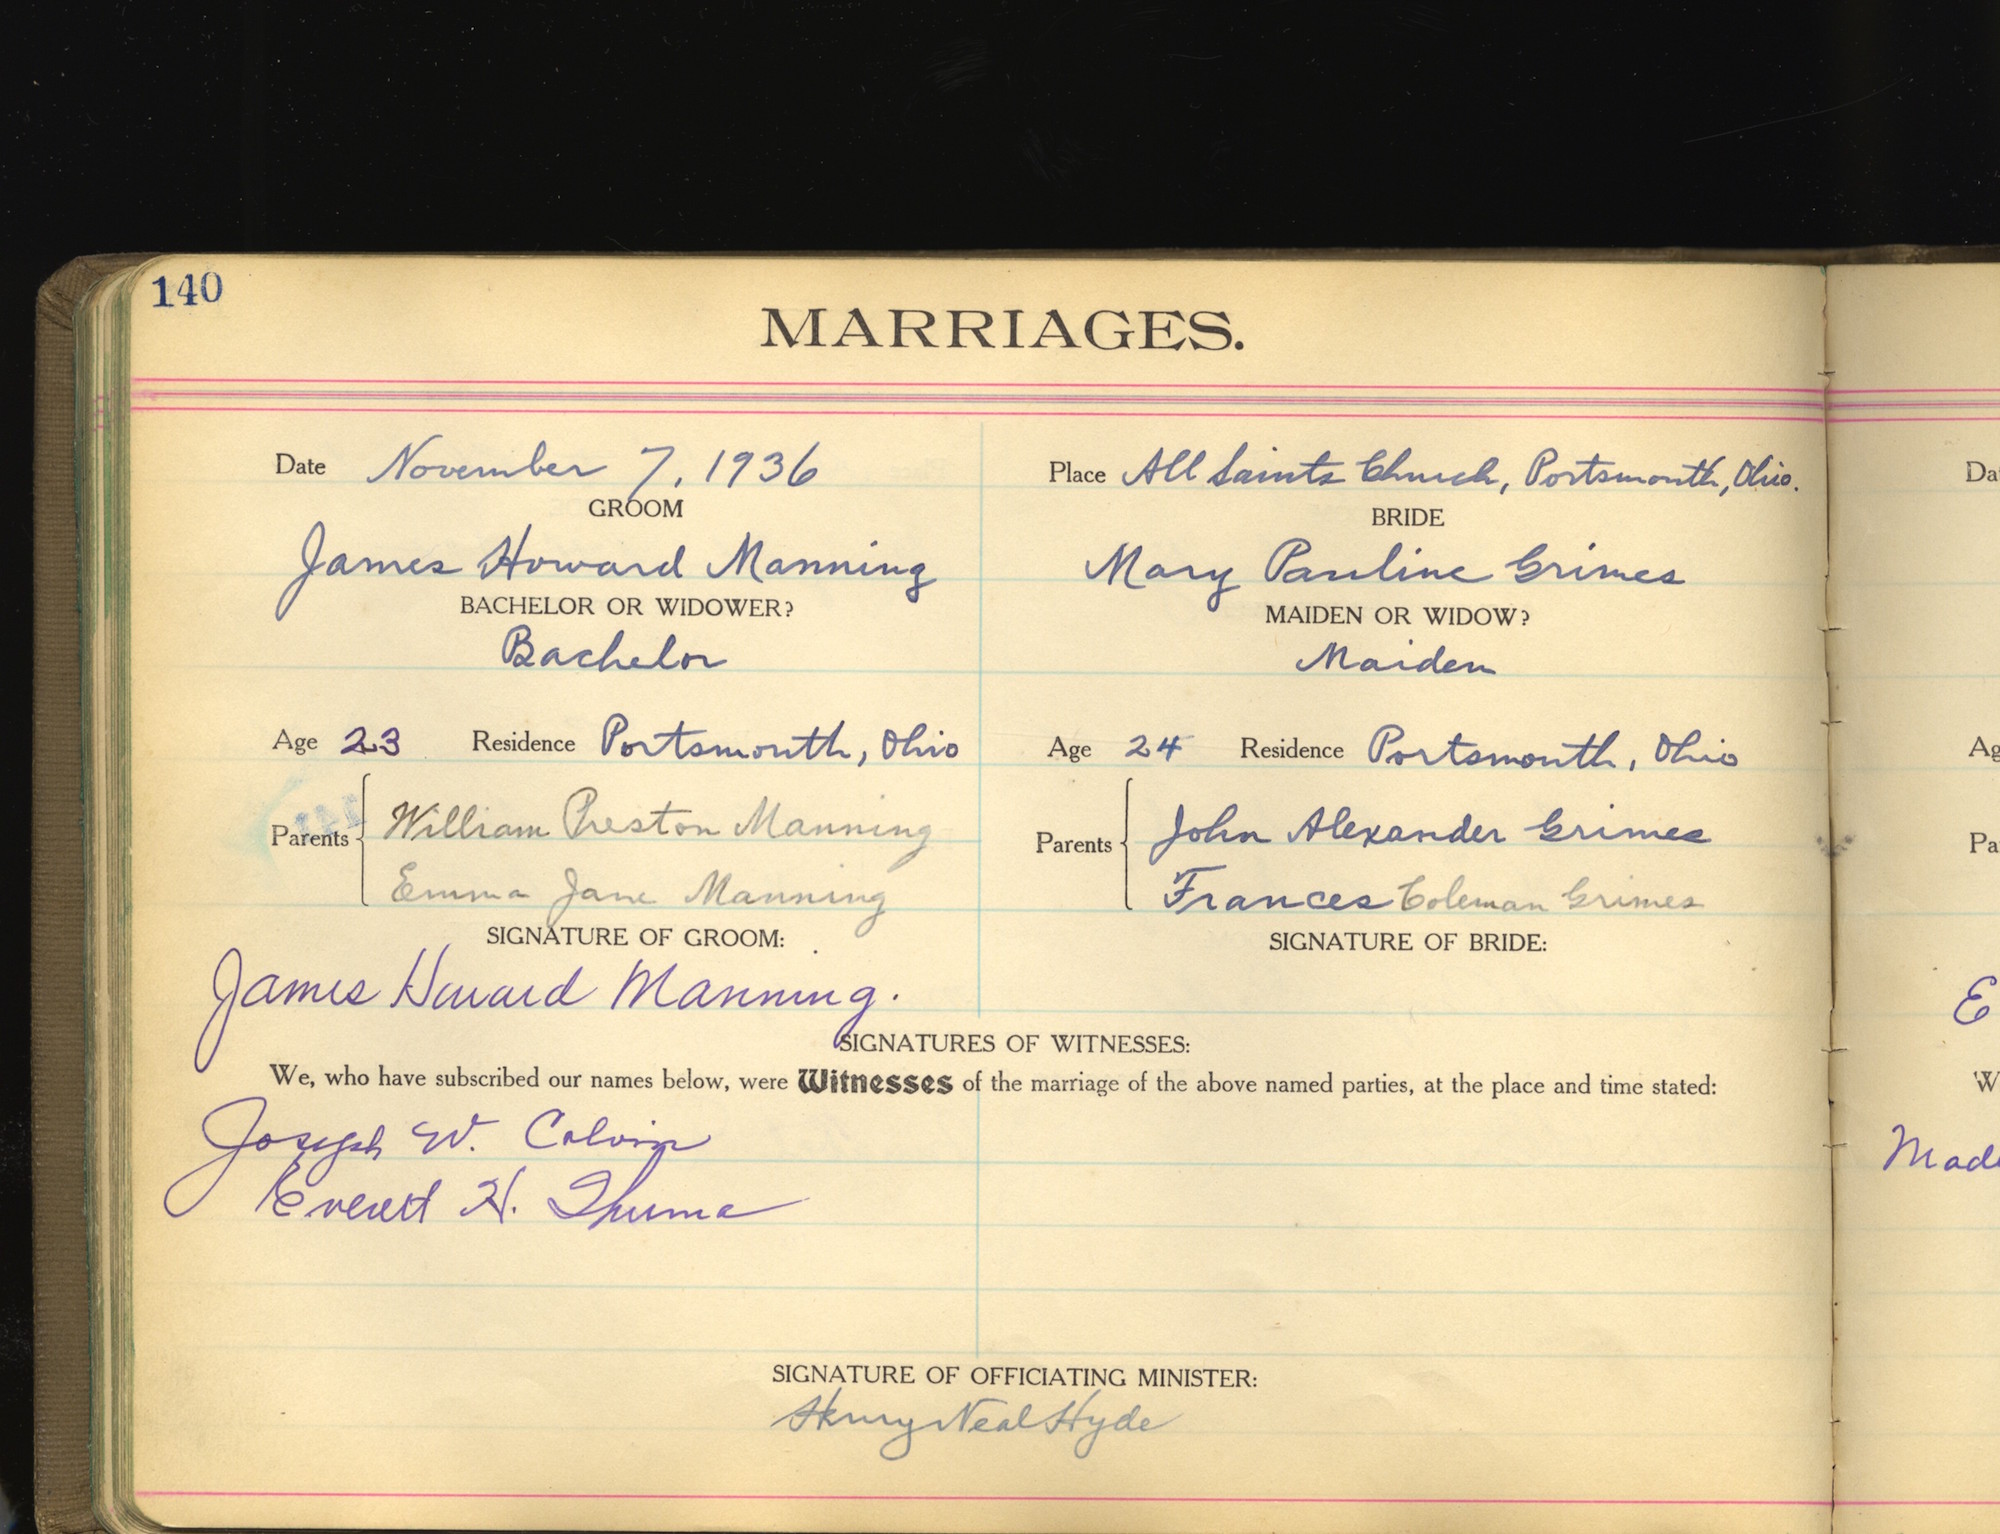 140
MARRIAGES.
Date November 7, 1936
Place All Saints Church, Portsmouth, Ohio.
GROOM
BRIDE
James Howard Manning
Mary Pauline Grimes
BACHELOR OR WIDOWER?
MAIDEN OR WIDOW?
Bachelor
Maiden
Age 23 Residence Portsmouth, Ohio
Age 24 Residence Portsmouth, Ohio
Parents William Preston Manning
Emma Jane Manning
Parents John Alexander Grimes
Frances Coleman Grimes
SIGNATURE OF GROOM:
SIGNATURE OF BRIDE:
James Howard Manning.
SIGNATURES OF WITNESSES:
We, who have subscribed our names below, were Witnesses of the marriage of the above named parties, at the place and time stated:
Joseph W. Colvin
Everett H. Thuma
SIGNATURE OF OFFICIATING MINISTER:
Henry Neal Hyde
Da
Ag
Pa
E
W
Mad